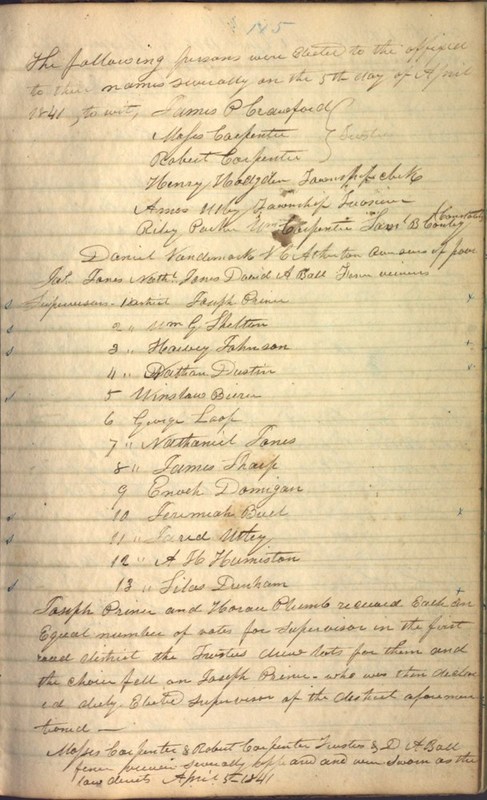 185
The following persons were Elected to the offices
to their names severally on the 5th day of April
1841, to wit, James P Crawford
Moses Carpenter } Trustees
Robert Carpenter
Henry Hodgden Township clerk
Amos Utley Township Treasurer
Riley Parker Wm Carpenter Saml B Conley Constables
Daniel Vandemark N C Atherton overseers of poor
Jas. Jones Nathl. Jones David A Ball Fence viewers
Supervisors - 1 district Joseph Prince
2 " Wm G Shelton
3 " Harvey Johnson
4 " Nathan Dustin
5 Winslow
6 George Loop
7 " Nathaniel Jones
8 " James Sharp
9 Enoch Domigan
10 Jeremiah Bull
11 " Jared Utley
12 " A H Humiston
13 " Silas Dunham
Joseph Prince and Horace Plumb received Each an
Equal number of votes for Supervisor in the first
road district the Trustees drew lots for them and
the choice fell on Joseph Prince - who was then declar
ed duly Elected Supervisor of the district aforemen
tioned —
Moses Carpenter & Robert Carpenter Trustees & D. A Ball
fence viewer severally appeard and were sworn as the
law directs April 5th 1841